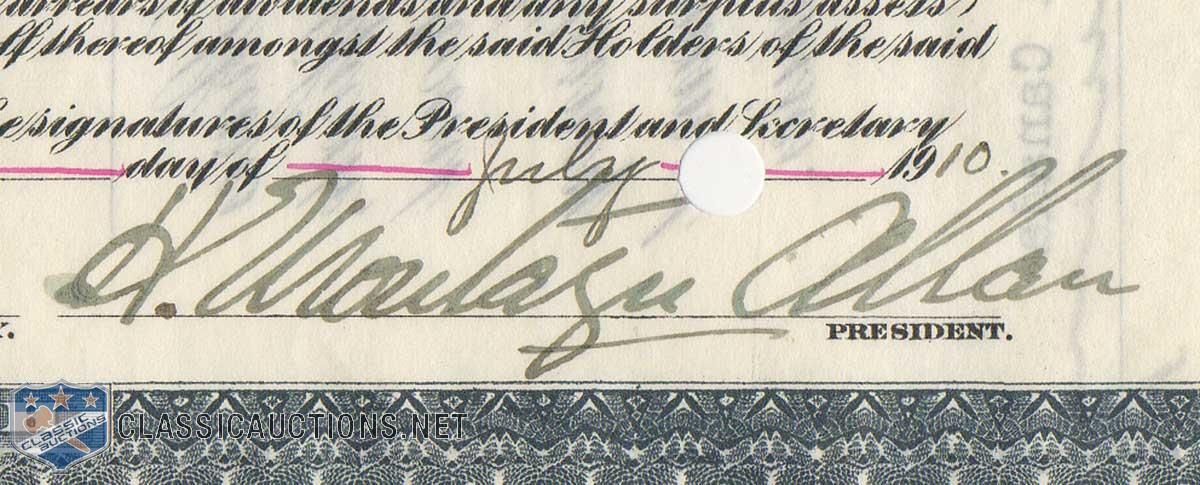 arrears of dividends and any surplus assets
ff thereof amongst the said Holders of the said
e signatures of the President and Secretary
day of July 1910.
H. Montagu Allan
Y. PRESIDENT.
CLASSIC AUCTIONS
CLASSICAUCTIONS.NET